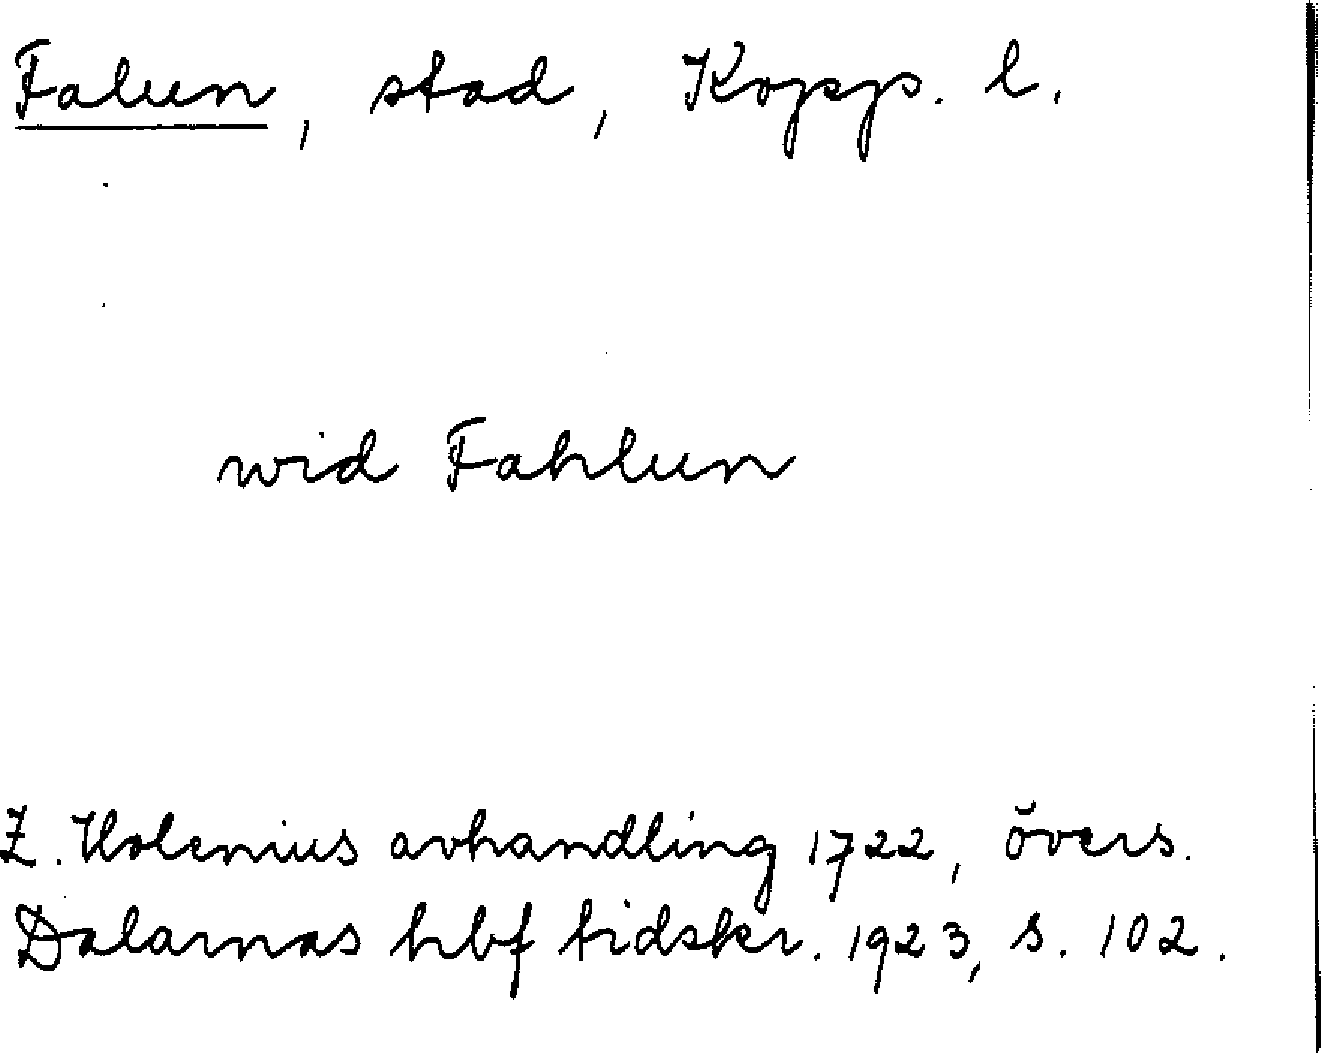 Falun, stad, Kopp. l.
wid Fahlun
Z. Holenius avhandling 1722, övers.
Dalarnas hbf tidskr. 1923, s. 102.